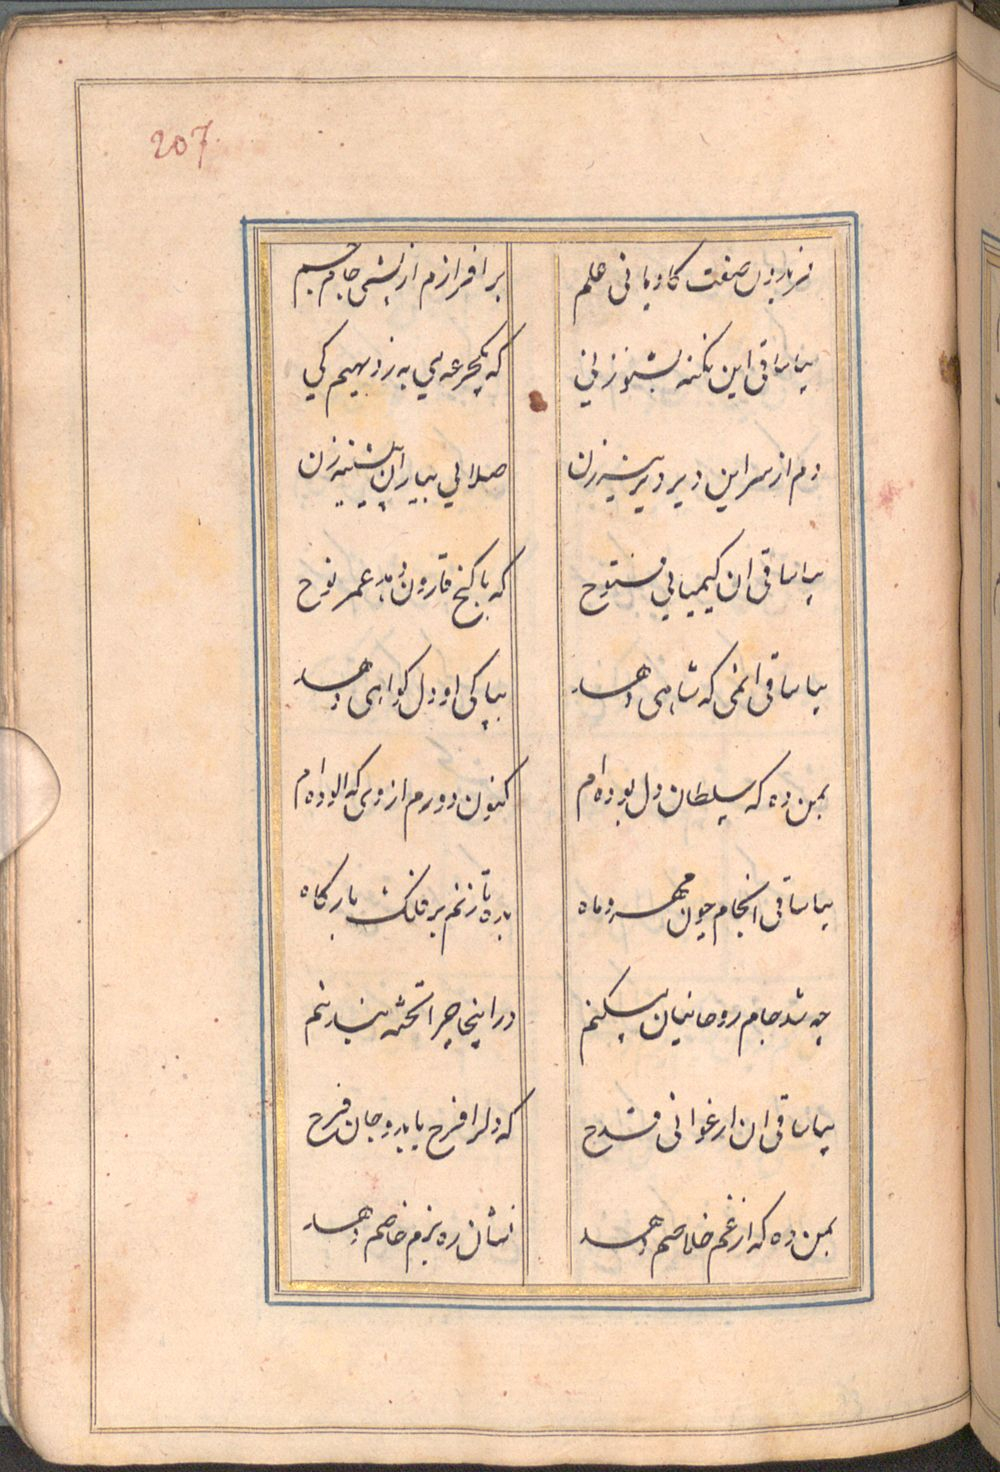 207
فریدون صفت کاویانی علم
برافرازم از پشتی جام جم
بیا ساقی این نکته بشنو ز نی
که یکجرعه می به ز دیهیم کی
دم از سر این دیر دیرینه زن
صلائی بیاران پیشینه زن
بیا ساقی ان کیمیائی فتوح
که با کنج قارون دهد عمر نوح
بیا ساقی انمی که شاهی دهد
بپاکی او دل کواهی دهد
بمن ده که سلطان دل بوده ام
کنون دورم از وی که الوده ام
بیا ساقی انجام چون مهر و ماه
بده تا زنم بر فلک بارکاه
چه شد جام روحانیان میکنم
در اینجا چرا تخته بند تنم
بیا ساقی ان ارغوانی قدح
که دلرا فرح یابد و جان فرح
بمن ده که از غم خلاصم دهد
نشان ره بزم خاصم دهد